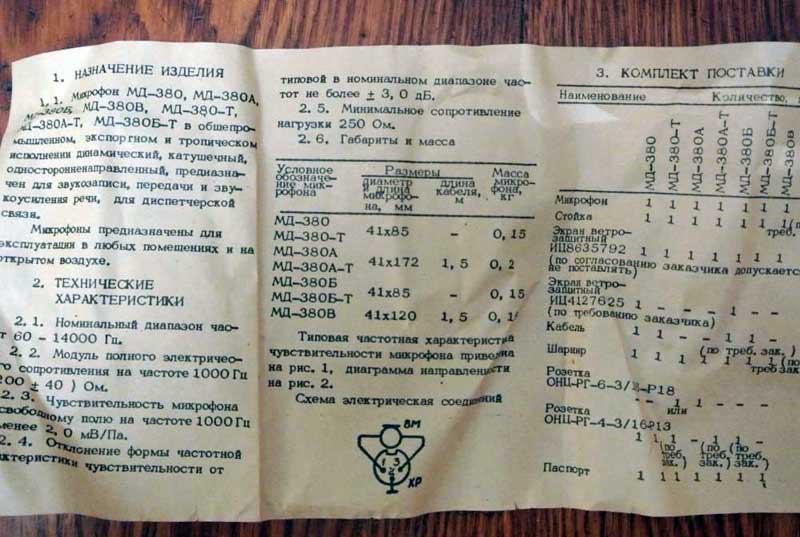 1. НАЗНАЧЕНИЕ ИЗДЕЛИЯ
1. 1. Микрофон МД-380, МД-380А,
МД-380Б, МД-380В, МД-380-Т,
МД-380А-Т, МД-380Б-Т в общепро-
мышленном, экспортном и тропическом
исполнении динамический, катушечный,
односторонненаправленный, предназна-
чен для звукозаписи, передачи и зву-
коусиления речи, для диспетчерской
связи.
Микрофоны предназначены для
эксплуатации в любых помещениях и на
открытом воздухе.
2. ТЕХНИЧЕСКИЕ
ХАРАКТЕРИСТИКИ
2. 1. Номинальный диапазон час-
60 - 14000 Гц.
2. 2. Модуль полного электричес-
сопротивления на частоте 1000 Гц
200 ± 40 ) Ом.
2. 3. Чувствительность микрофона
свободному полю на частоте 1000 Гц
менее 2, 0 мВ/Па.
2. 4. Отклонение формы частотной
характеристики чувствительности от
типовой в номинальном диапазоне час-
тот не более ± 3, 0 дБ.
2. 5. Минимальное сопротивление
нагрузки 250 Ом.
2. 6. Габариты и масса
Условное обозначе- ние мик- рофона Размеры Масса микро- фона, кг
диаметр и длина микрофо- на, мм длина кабеля, м
МД-380
МД-380-Т 41х85 - 0, 15
МД-380А
МД-380А-Т 41х172 1, 5 0, 2
МД-380Б
МД-380Б-Т 41х85 - 0, 15
МД-380В 41х120 1, 5
Типовая частотная характеристика
чувствительности микрофона приведена
на рис. 1, диаграмма направленности
на рис. 2.
Схема электрическая соединений
ВМ
1 3
2
ХР
3. КОМПЛЕКТ ПОСТАВКИ
Наименование Количество,
МД-380 МД-380-Т МД-380А МД-380А-Т МД-380Б МД-380Б-Т МД-380В
Микрофон 1 1 1 1 1 1 1
Стойка 1 1 1 1 1 1 1(по
Экран ветро- треб.
защитный
ИЦ8635792 1 1 1 1 1 1 1
(по согласованию заказчика допускается
не поставлять)
Экран ветро-
защитный
ИЦ4127625 1 - - - 1 - -
(по требованию заказчика)
Кабель 1 1 - - 1 1 -
(по треб. зак.)
Шарнир 1 1 1 1 1 1 1(по
треб зак
Розетка
ОНЦ-РГ-6-3/18-Р18
1 - - 1 - - -
Розетка или
ОНЦ-РГ-4-3/16-Р13
1 1 1 - 1 1 -
(по (по (по
треб. треб. треб.
зак.) зак.) зак.)
Паспорт 1 1 1 1 1 1